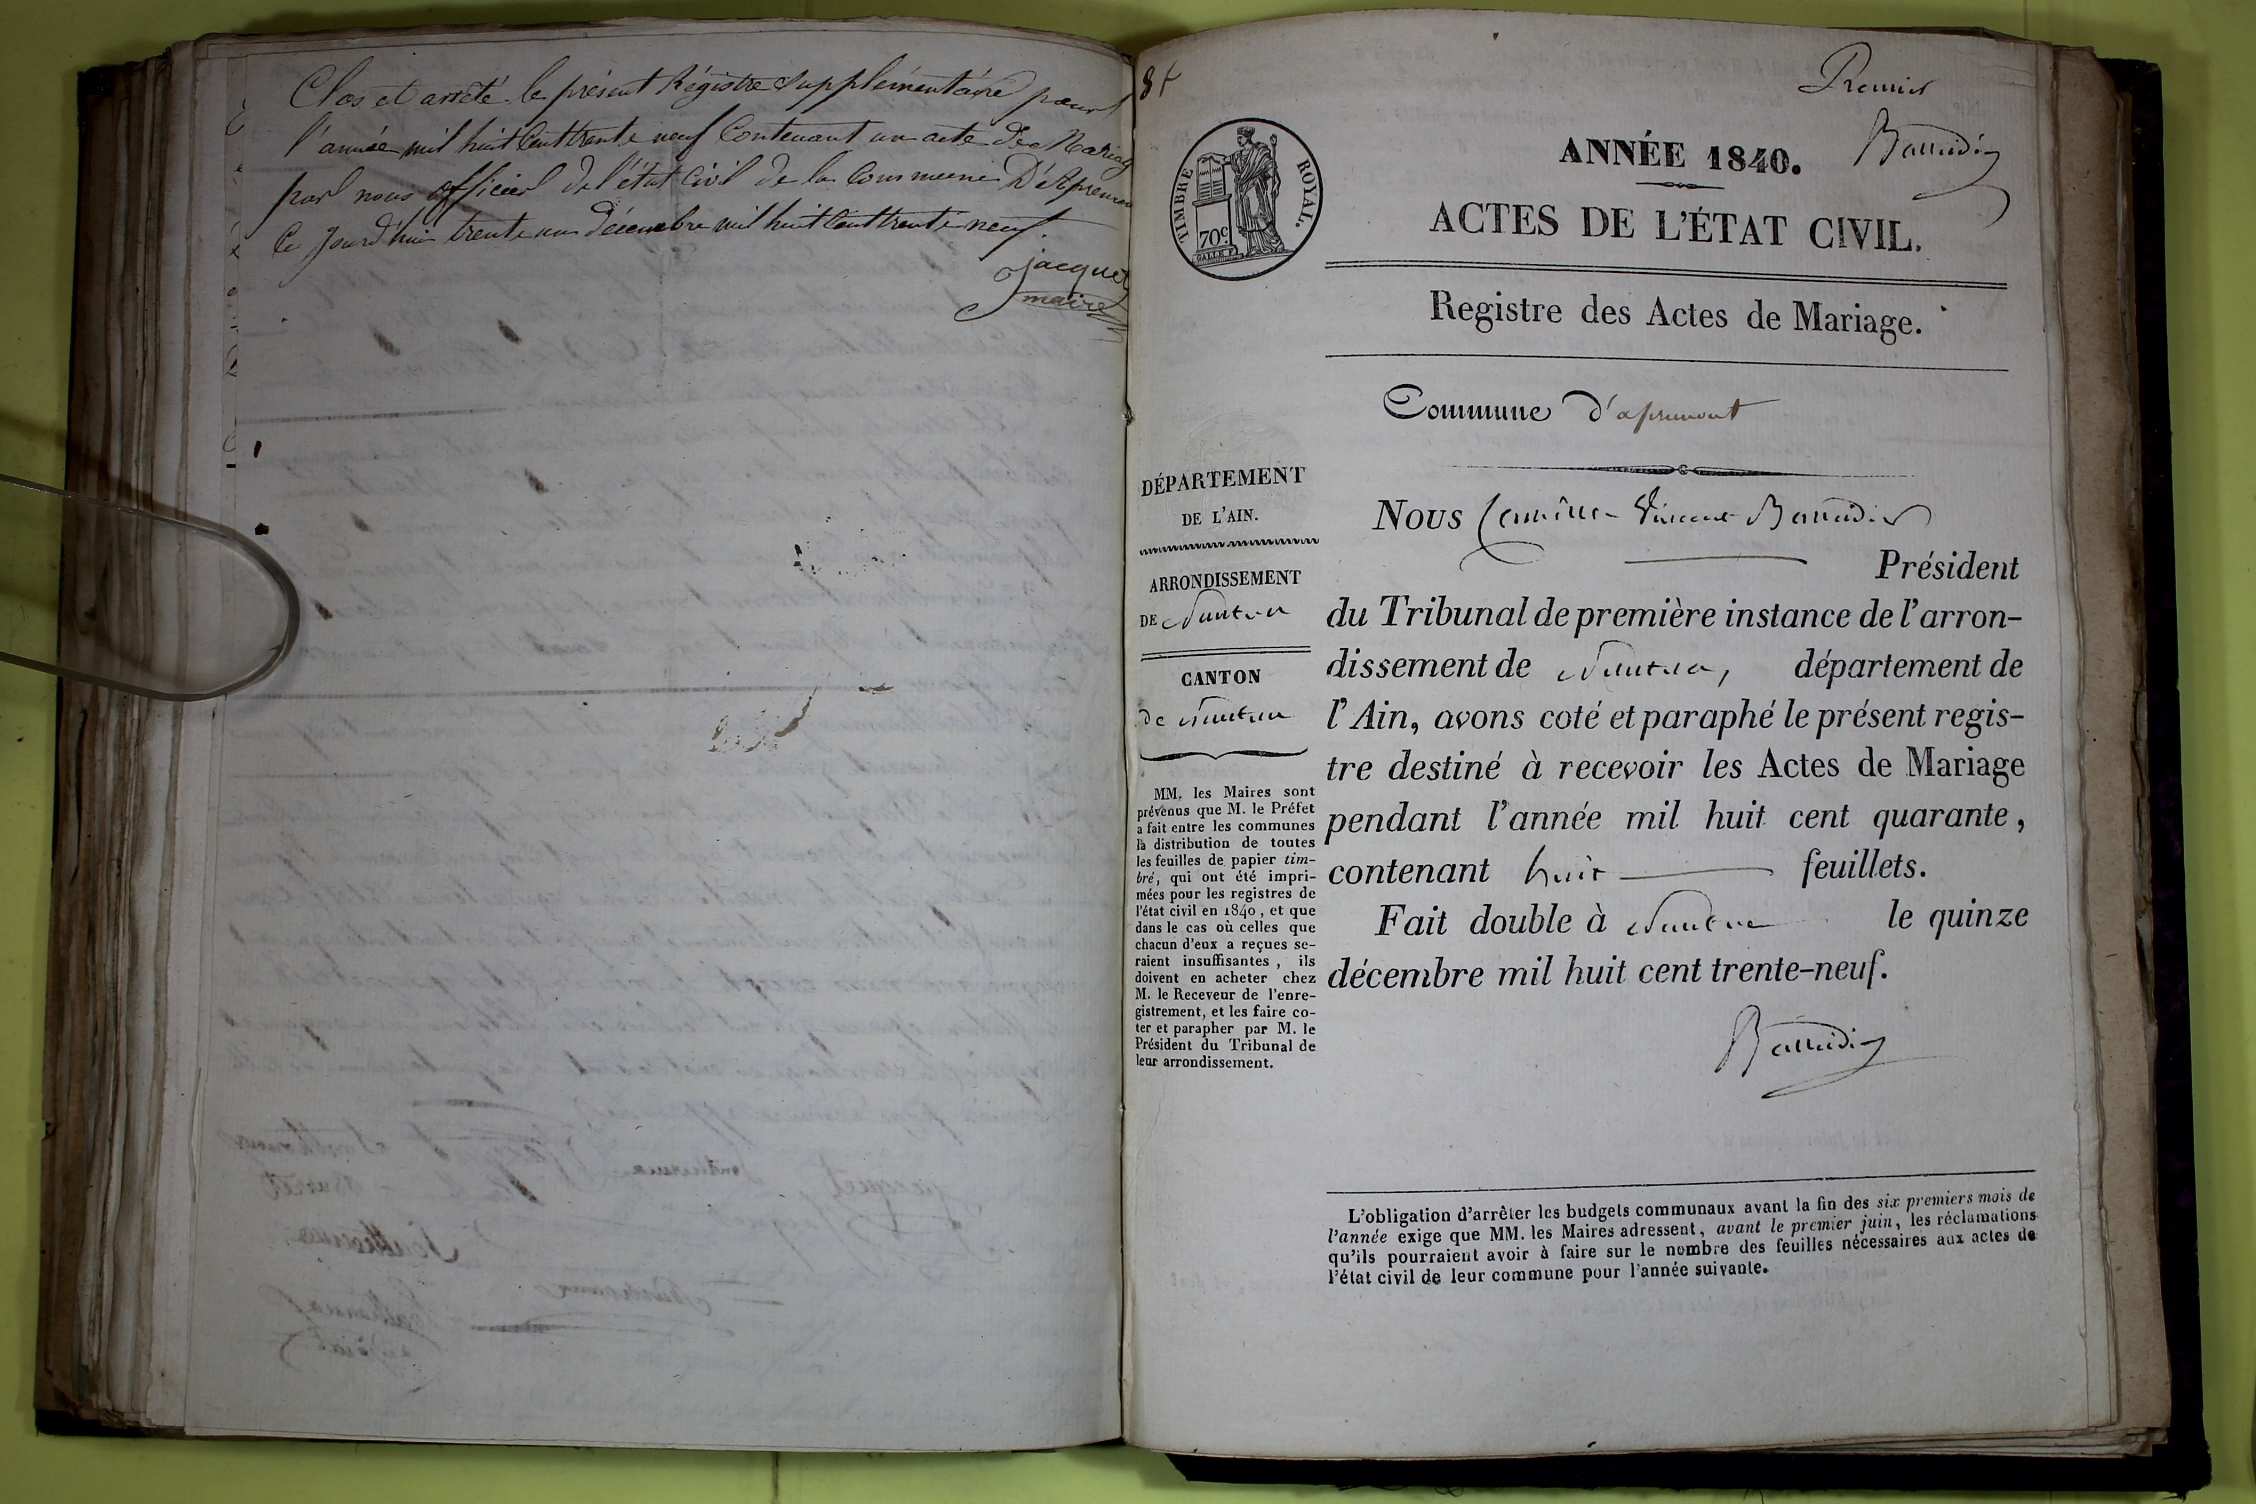 Clos et arrêté le présent Régistre Supplémentaire pour
l'année mil huit Cent trente neuf Contenant un acte de Mariag
par nous officier de l'état Civil de la Commune D'Apremon
Ce jourd'hui trente un décembre mil huit Cent trente neuf.
jacquet
maire
Premier
ANNÉE 1840.
ACTES DE L'ÉTAT CIVIL.
TIMBRE ROYAL.
70c
Registre des Actes de Mariage.
Commune d'apremont
DÉPARTEMENT
DE L'AIN.
ARRONDISSEMENT
DE Nantua
CANTON
de nantua
MM. les Maires sont
prévenus que M. le Préfet
a fait entre les communes
la distribution de toutes
les feuilles de papier tim-
bré, qui ont été impri-
mées pour les registres de
l'état civil en 1840, et que
dans le cas où celles que
chacun d'eux a reçues se-
raient insuffisantes, ils
doivent en acheter chez
M. le Receveur de l'enre-
gistrement, et les faire co-
ter et parapher par M. le
Président du Tribunal de
leur arrondissement.
Nous Vincent
Président
du Tribunal de première instance de l'arron-
dissement de Nantua, département de
l'Ain, avons coté et paraphé le présent regis-
tre destiné à recevoir les Actes de Mariage
pendant l'année mil huit cent quarante,
contenant huit feuillets.
Fait double à Nantua le quinze
décembre mil huit cent trente-neuf.
L'obligation d'arrêter les budgets communaux avant la fin des six premiers mois de
l'année exige que MM. les Maires adressent, avant le premier juin, les réclamations
qu'ils pourraient avoir à faire sur le nombre des feuilles nécessaires aux actes de
l'état civil de leur commune pour l'année suivante.